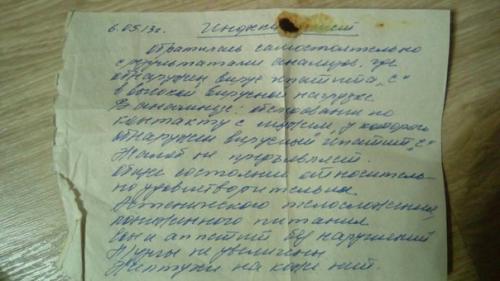 6.05.13г. Инфекционист
обратилась самостоятельно
с результатами анализов, где
обнаружен вирус гепатита "С"
в высокой вирусной нагрузке
В анамнезе: обследована по
контакту с мужем, у которого
обнаружен вирусный гепатит "С"
Жалоб не предъявляет.
общее состояние относитель-
но удовлетворительна
Астенического телосложения
пониженного питания
Сон и аппетит без нарушений
Л/узлы не увеличены
Желтухи на коже нет.